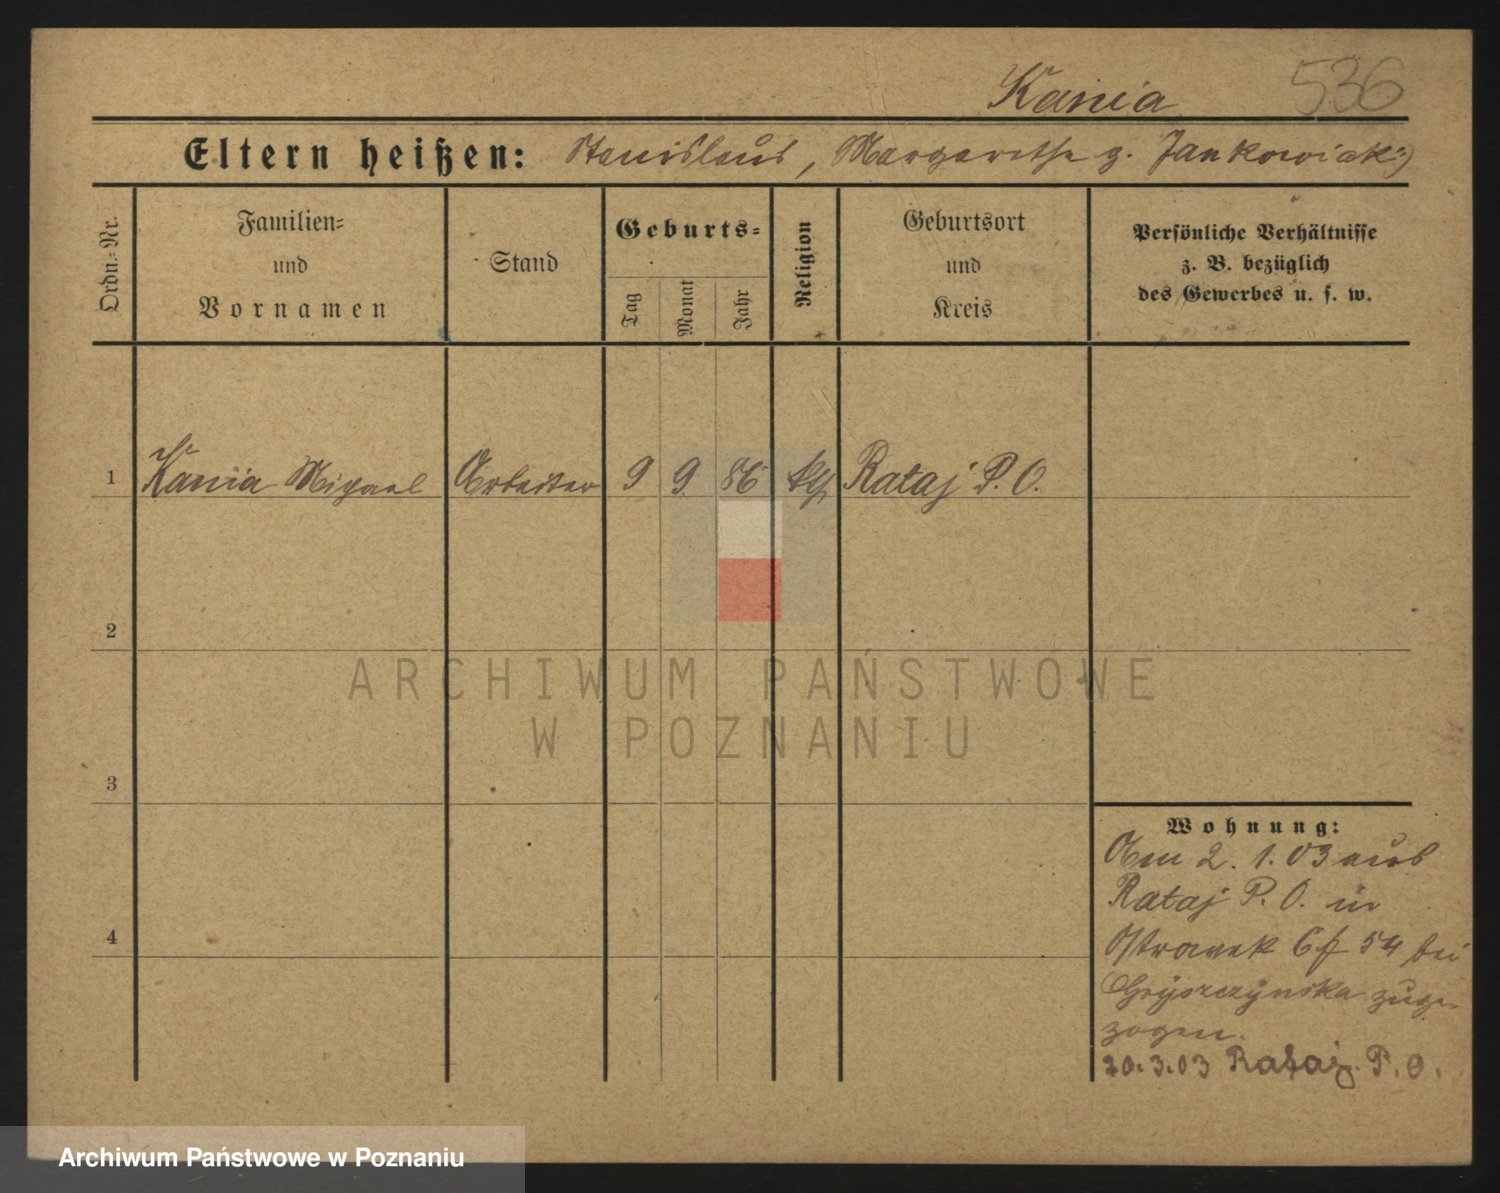 Kania 536
Eltern heißen: Stanislaus, Margarethe g. Jankowiak
Ordn.-Nr.
Familien-
und
Vornamen
Stand
Geburts-
Tag
Monat
Jahr
Religion
Geburtsort
und
Kreis
Persönliche Verhältnisse
z. B. bezüglich
des Gewerbes u. s. w.
1 Kania Michael Arbeiter 9 9 86 kth Rataj P. O.
2
3
4
ARCHIWUM PAŃSTWOWE
W POZNANIU
Wohnung:
Am 2. 1. 03 aus
Rataj P. O. in
54 bei
zuge-
zogen.
20.3.03 Rataj. P. O.
Archiwum Państwowe w Poznaniu